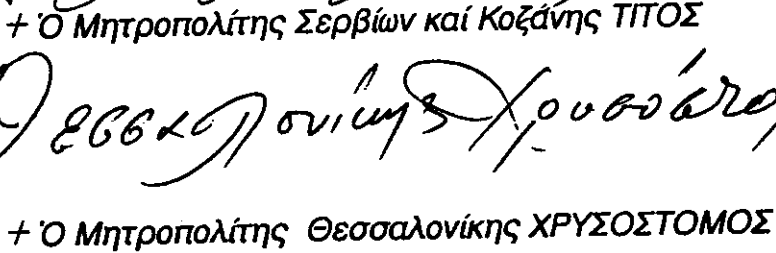 + Ὁ Μητροπολίτης Σερβίων καί Κοζάνης ΤΙΤΟΣ
Θεσσαλονίκης Χρυσόστο
+ Ὁ Μητροπολίτης Θεσσαλονίκης ΧΡΥΣΟΣΤΟΜΟΣ